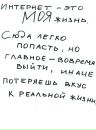 ИНТЕРНЕТ - ЭТО
МОЯ ЖИЗНЬ.
СЮДА ЛЕГКО
ПОПАСТЬ, НО
ГЛАВНОЕ - ВОВРЕМЯ
ВЫЙТИ, ИНАЧЕ
ПОТЕРЯЕШЬ ВКУС
К РЕАЛЬНОЙ ЖИЗНИ